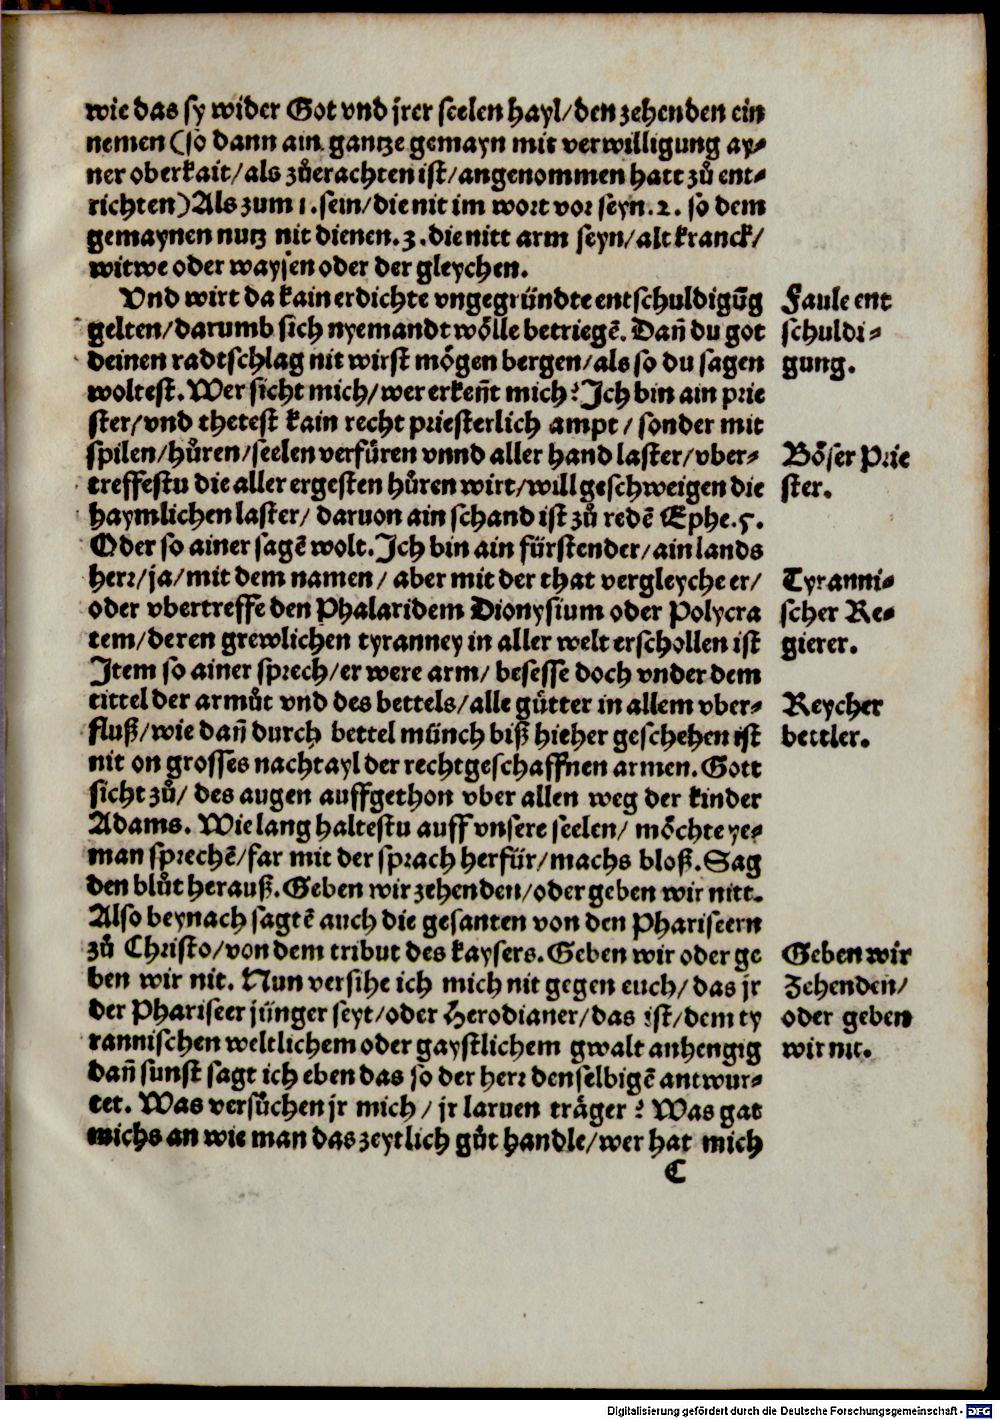 wie das sy wider Got vnd jrer seelen hayl/den zehenden ein
nemen (so dann ain gantze gemayn mit verwilligung ay⸗
ner oberkait/als zůerachten ist/angenommen hatt zů ent⸗
richten) Als zum 1. sein/die nit im wort vor seyn. 2. so dem
gemaynen nutz nit dienen. 3. die nitt arm seyn/alt kranck/
witwe oder waysen oder der gleychen.
Vnd wirt da kain erdichte vngegründte entschuldigūg
gelten/darumb sich nyemandt wölle betriegē. Dañ du got
deinen radtschlag nit wirst mögen bergen/als so du sagen
woltest. Wer sicht mich/wer erkeñt mich? Ich bin ain prie
ster/vnd thetest kain recht priesterlich ampt/sonder mit
spilen/hůren/seelen verfüren vnnd aller hand laster/vber⸗
treffestu die aller ergesten hůren wirt/will geschweigen die
haymlichen laster/daruon ain schand ist zů redē Ephe. 5.
Oder so ainer sagē wolt. Ich bin ain fürstender/ain lands
herr/ja/mit dem namen/aber mit der that vergleyche er/
oder vbertreffe den Phalaridem Dionysium oder Polycra
tem/deren grewlichen tyranney in aller welt erschollen ist
Item so ainer sprech/er were arm/besesse doch vnder dem
tittel der armůt vnd des bettels/alle gütter in allem vber⸗
fluß/wie dañ durch bettel münch biß hieher geschehen ist
nit on grosses nachtayl der rechtgeschaffnen armen. Gott
sicht zů/des augen auffgethon vber allen weg der kinder
Adams. Wie lang haltestu auff vnsere seelen/möchte ye⸗
man sprechē/far mit der sprach herfür/machs bloß. Sag
den blůt herauß. Geben wir zehenden/oder geben wir nitt.
Also beynach sagtē auch die gesanten von den Phariseern
zů Christo/von dem tribut des kaysers. Geben wir oder ge
ben wir nit. Nun versihe ich mich nit gegen euch/das jr
der Phariseer jünger seyt/oder Herodianer/das ist/dem ty
rannischen weltlichem oder gaystlichem gwalt anhengig
dañ sunst sagt ich eben das so der herr denselbigē antwur⸗
tet. Was versůchen jr mich/jr laruen träger? Was gat
michs an wie man das zeytlich gůt handle/wer hat mich
C
Faule ent
schuldi⸗
gung.
Böser Prie
ster.
Tyranni⸗
scher Re⸗
gierer.
Reycher
bettler.
Geben wir
Zehenden/
oder geben
wir nit.
Digitalisierung gefördert durch die Deutsche Forschungsgemeinschaft - DFG